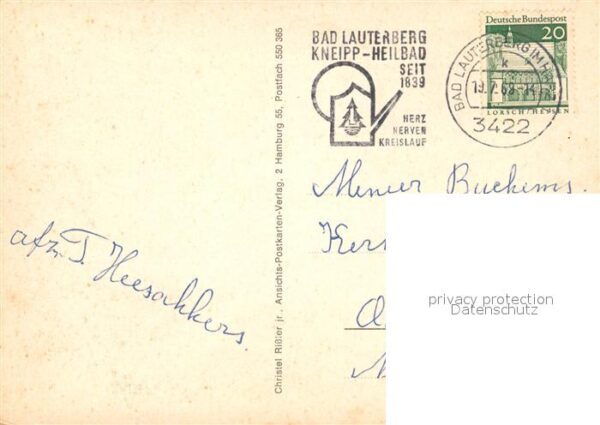 BAD LAUTERBERG
KNEIPP-HEILBAD
SEIT
1839
HERZ
NERVEN
KREISLAUF
Deutsche Bundespost
20
LORSCH/HESSEN
BAD LAUTERBERG IM HARZ
k
3422
Meneer Buckems.
afz. T. Heesakkers.
Christel Rißler jr., Ansichts-Postkarten-Verlag, 2 Hamburg 55, Postfach 550 365
privacy protection
Datenschutz